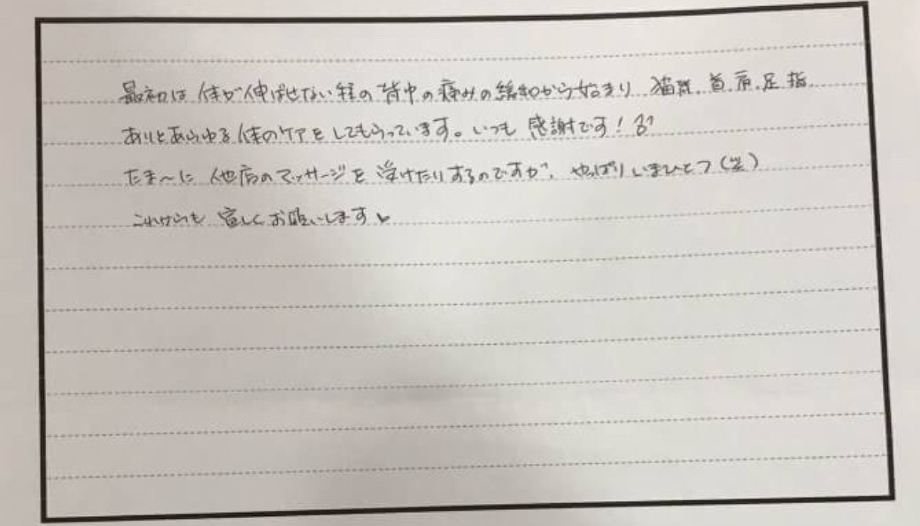 最初は体が伸ばせない程の背中の痛みの緩和から始まり 猫背、首、肩、足、指
ありとあらゆる体のケアをしてもらっています。いつも 感謝です!
たま〜に 他店のマッサージを 受けたりするのですが、やっぱりいまひとつ(笑)
これからも 宜しくお願いします♥